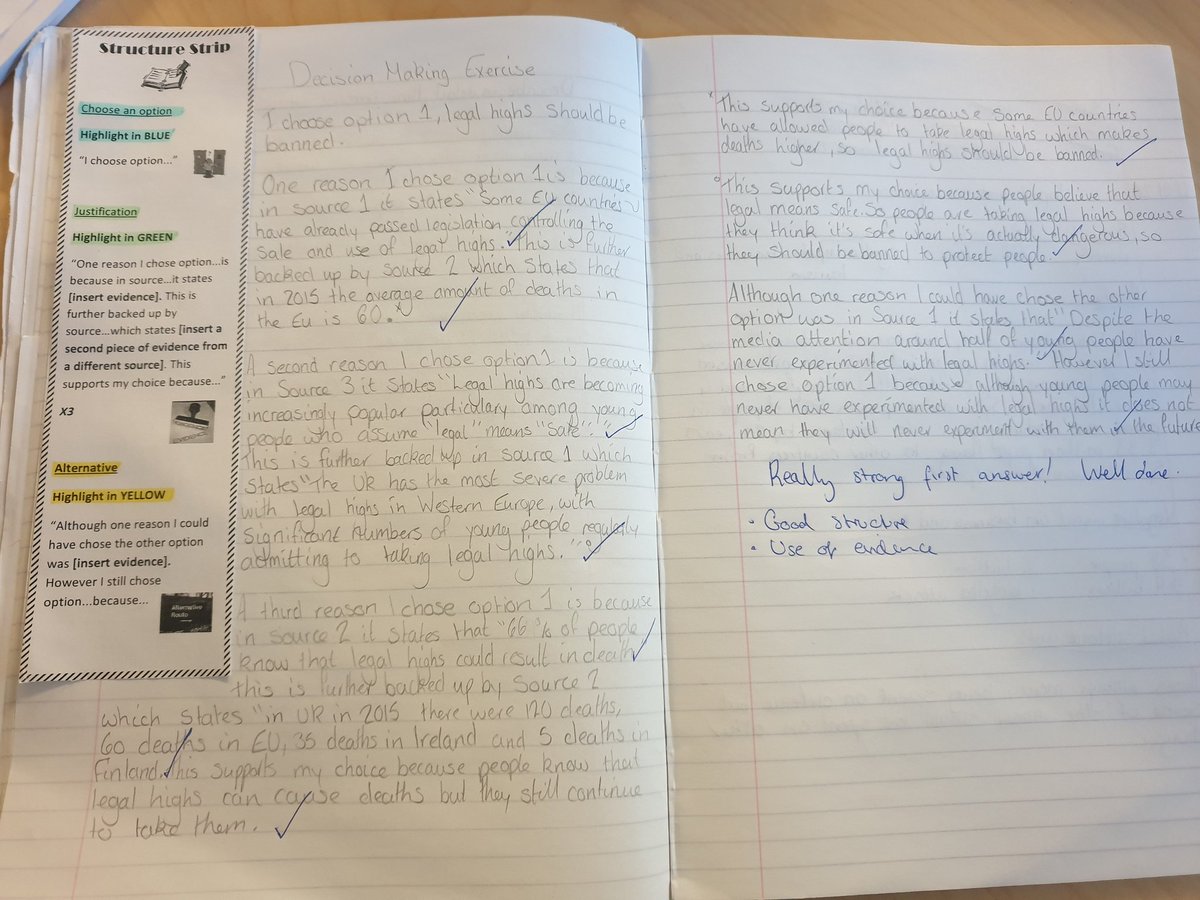 Structure Strip
Choose an option
Highlight in BLUE
"I choose option..."
Justification
Highlight in GREEN
"One reason I chose option...is
because in source...it states
[insert evidence]. This is
further backed up by
source...which states [insert a
second piece of evidence from
a different source]. This
supports my choice because..."
X3
Alternative
Highlight in YELLOW
"Although one reason I could
have chose the other option
was [insert evidence].
However I still chose
option...because...
Alternative
Route
Decision Making Exercise
I choose option 1, legal highs should be
banned.
One reason I chose option 1 is because
in source 1 it states "Some EU countries
have already passed legislation controlling the
sale and use of legal highs." This is further
backed up by source 2 which states that
in 2015 the average amount of deaths in
the Eu is 60.*
A second reason I chose option 1 is because
in Source 3 it states "Legal highs are becoming
increasingly popular particulary among young
people who assume "legal" means "safe"."
This is further backed up in source 1 which
states "The UK has the most severe problem
with legal highs in Western Europe, with
significant numbers of young people regularly
admitting to taking legal highs."°
A third reason I chose option 1 is because
in source 2 it states that "66% of people
know that legal highs could result in death
this is further backed up by Source 2
which states "in UK in 2015 there were 120 deaths,
60 deaths in EU, 35 deaths in Ireland and 5 deaths in
Finland. This supports my choice because people know that
legal highs can cause deaths but they still continue
to take them.
*This supports my choice because some EU countries
have allowed people to take legal highs which makes
deaths higher, so legal highs should be banned.
°This supports my choice because people believe that
legal means safe. So people are taking legal highs because
they think it's safe when it's actually dangerous, so
they should be banned to protect people.
Although one reason I could have chose the other
option was in Source 1 it states that "Despite the
media attention around half of young people have
never experimented with legal highs." However I still
chose option 1 because although young people may
never have experimented with legal highs it does not
mean they will never experiment with them in the future.
Really strong first answer! Well done.
• Good structure
• Use of evidence